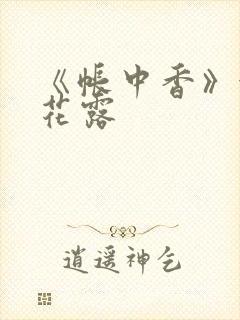 《帐中香》
花露
逍遥神乞